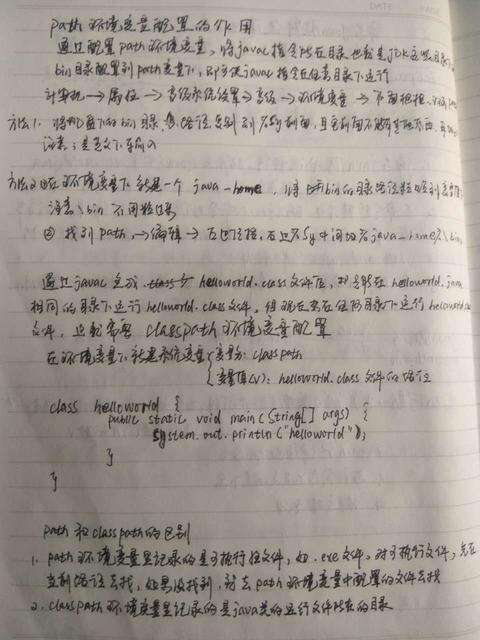 path环境变量配置的作用
通过配置path环境变量,将javac指令所在目录也就是jDK安装目录下
bin目录配置到path变量下,即可使javac指令在任意目录下运行
计算机→属性→高级系统设置→高级→环境变量→
方法1、将 盘下的bin目录 路径复制到 %sy前面,且
注意;是英文下 的
方法2 ①在环境变量下新建一个java_home,将 bin的目录路径粘贴到变量值
注意\bin不用粘贴
②找到path,→编辑→ 在 %sy中间 %java_home%\bin;
通过javac生成 helloworld.class文件后,只能在helloworld.java
相同的目录下运行helloworld.class文件。但现在要在任何目录下运行helloworld.class
文件,这就需要classpath环境变量配置
在环境变量下新建系统变量{变量名: classpath
{变量值(V): helloworld.class文件的路径
class helloworld {
public static void main(String[] args) {
System.out.println("helloworld");
}
}
path和classpath的区别
1. path环境变量里记录的是可执行性文件,如.exe文件,对可执行文件,先在
当前路径去找,如果没找到,就去path环境变量中配置的文件去找
2. classpath环境变量里记录的是java类的运行文件所在的目录